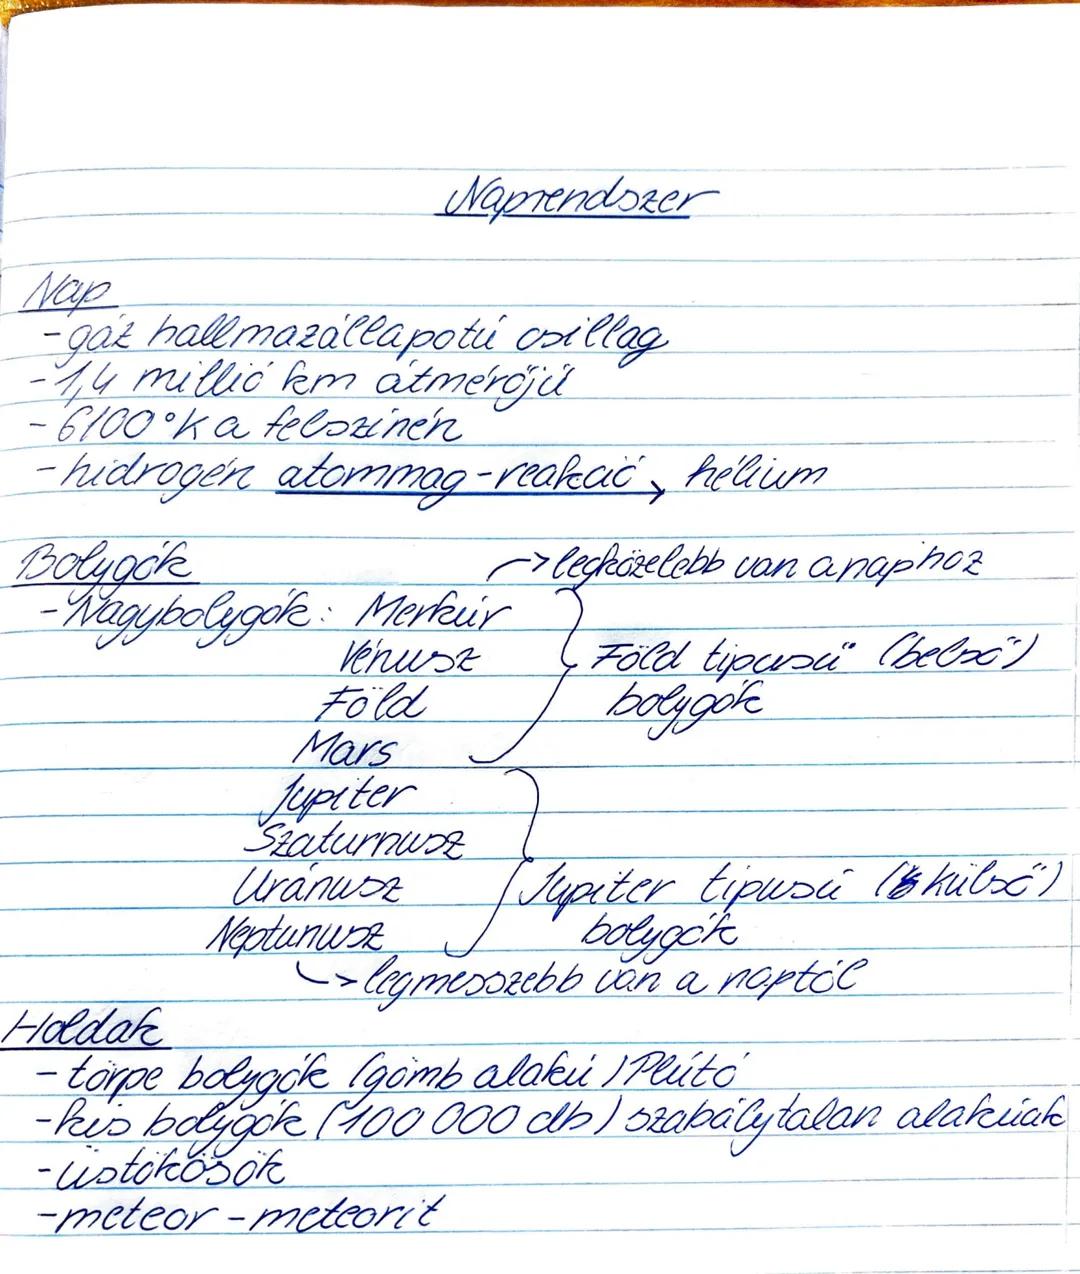 Naprendszer
Nap
- gáz hallmazállapotú csillag
- 1,4 millió km átmérőjű
- 6100°K a felszínén
- hidrogén atommag-reakció → hélium
Bolygók -> legközelebb van a naphoz
- Nagybolygók: Merkúr
Vénusz Föld tipusú (belső)
Föld bolygók
Mars
Jupiter
Szaturnusz
Uránusz Jupiter tipusú (külső)
Neptunusz bolygók
-> legmesszebb van a naptól
Holdak
- törpe bolygók (gömb alakú) Plútó
- kis bolygók (100 000 db) szabálytalan alakúak
- üstökösök
- meteor - meteorit